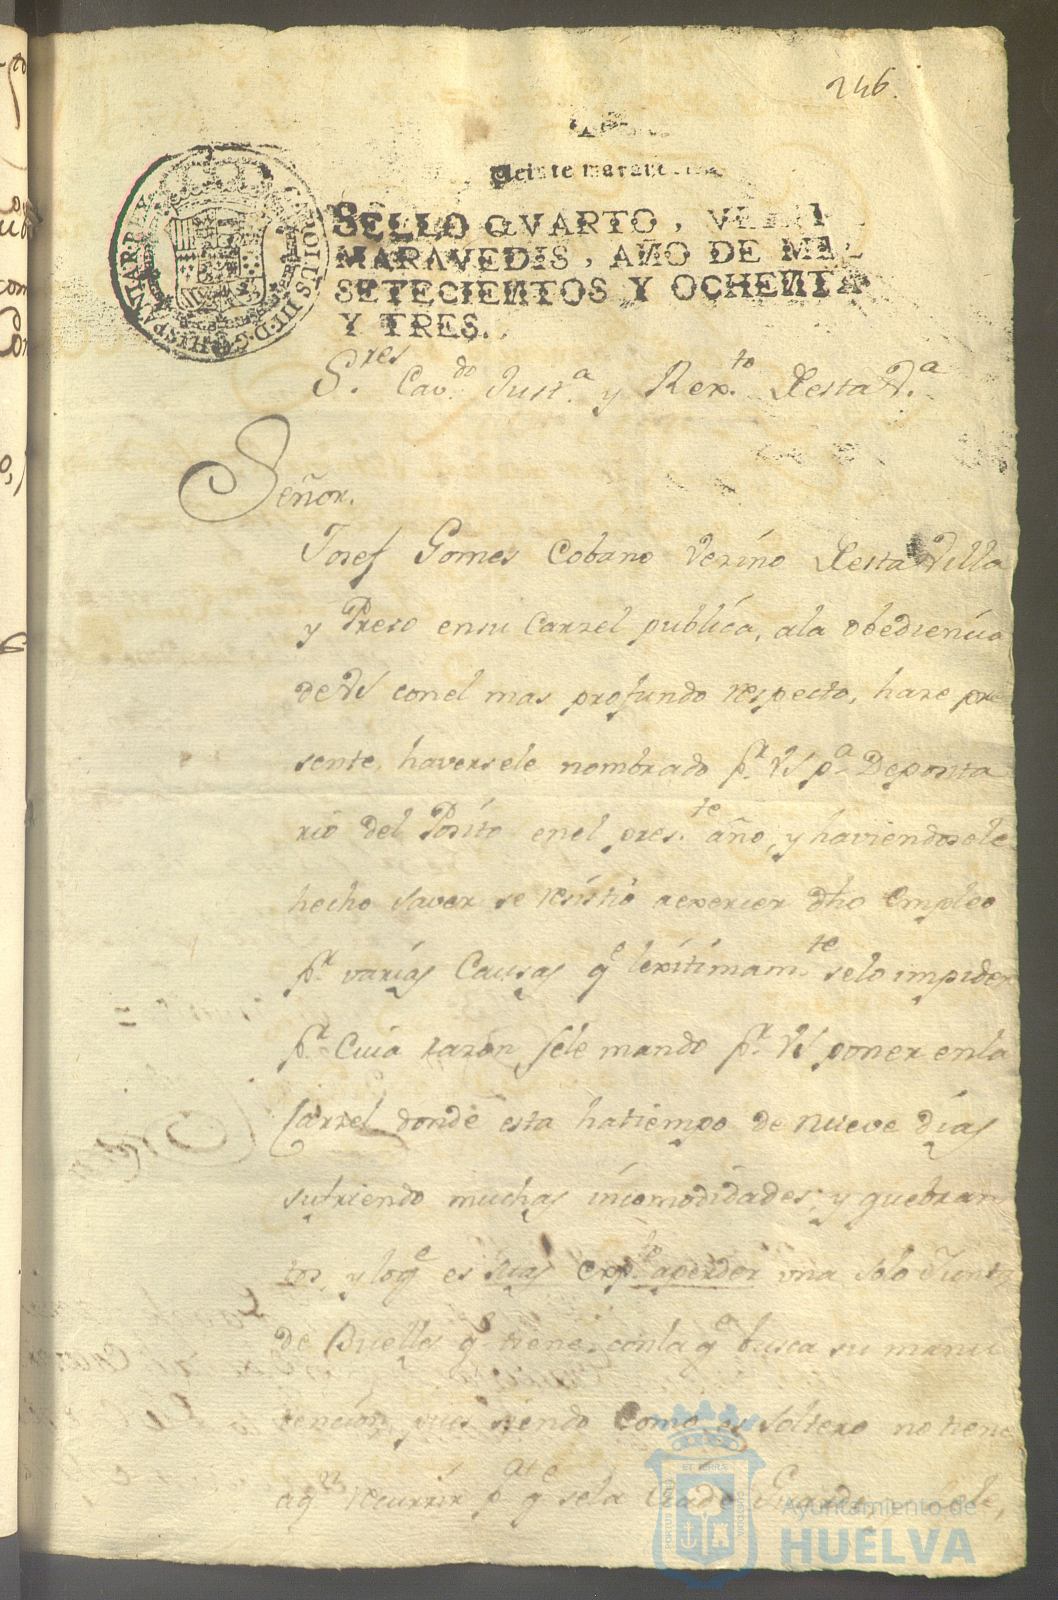 246.
Veinte maravedis.
SELLO QVARTO, VEINTE
MARAVEDIS, AÑO DE MIL
SETECIENTOS Y OCHENTA
Y TRES.
HISPANIAR·REX
III·D·G·
S.res Cav.do Just.a y Rex.to Desta V.a
Señor.
Josef Gomes Cobano Vezino Desta Villa
y Preso ensu Carzel publica, ala obediencia
de VS conel mas profundo respecto, haze pre
sente, haversele nombrado p.r VS p.a Deposita
rio del Posito enel pres.te año, y haviendosele
hecho saver se resistio aexercer dho Empleo
p.r varias Causas q.e lexitimam.te selo impiden
p.r Cuia razon sele mando p.r VS poner enla
Carzel donde esta hatiempo de nueve dias
sufriendo muchas incomodidades, y quebran
tos, y loq.e es mas exp.to aperder una sola Junta
de Buelles q.e tiene, conla q.e busca su manu
tencion, pues siendo Como es soltero no tiene
aq.n recurrir p.a q.e sela
Ayuntamiento de
HUELVA